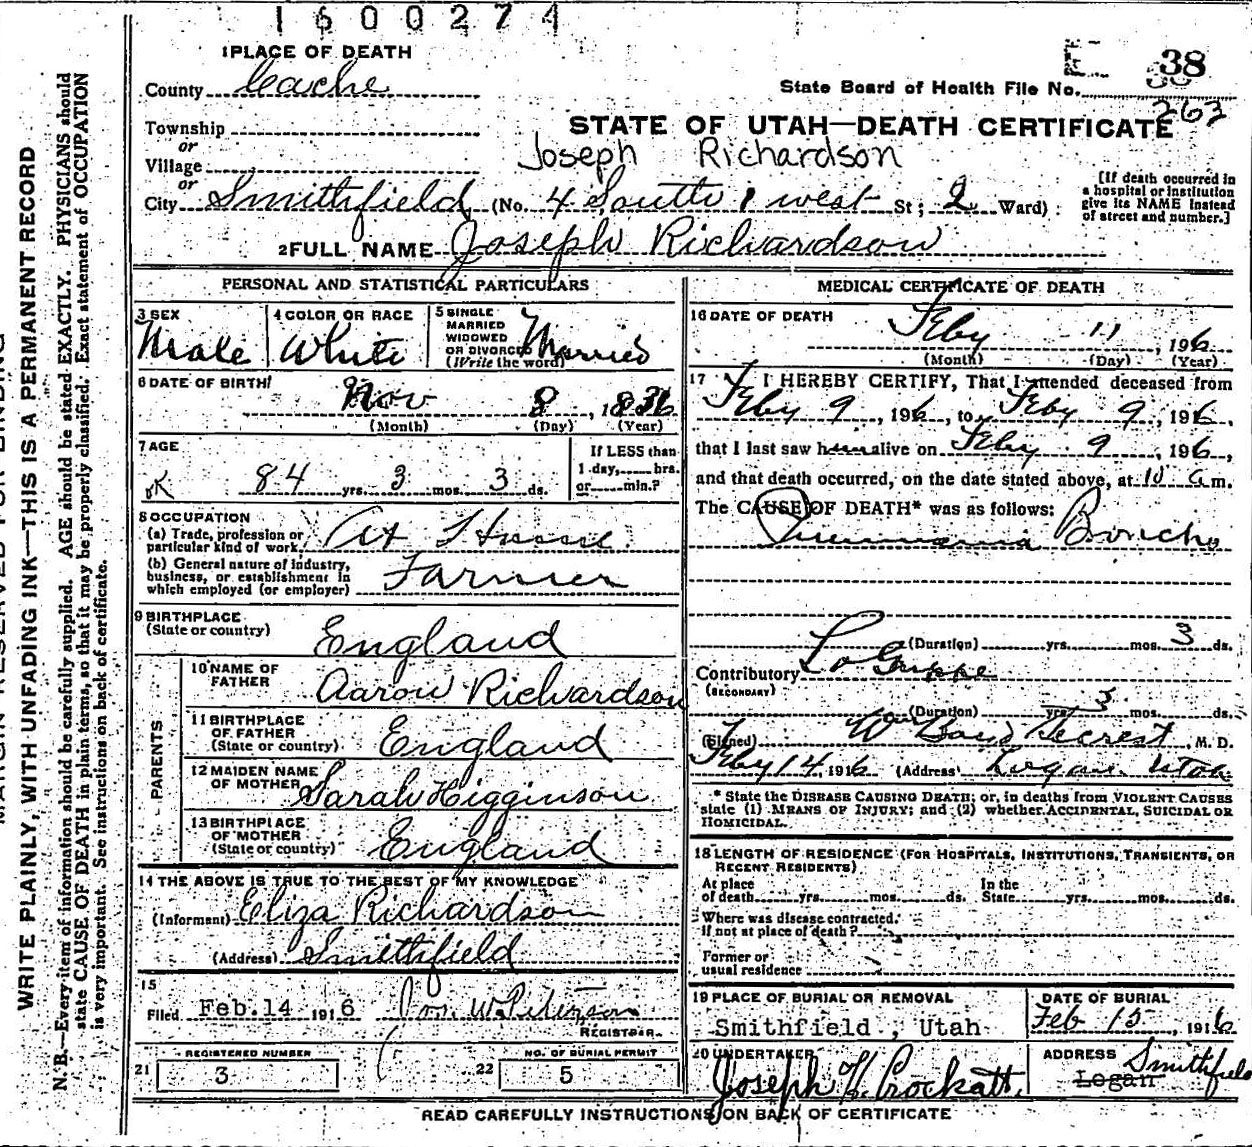 1600274
1 PLACE OF DEATH
County Cache
State Board of Health File No. 38
263
Township
or
Village
STATE OF UTAH—DEATH CERTIFICATE
Joseph Richardson
or
City Smithfield (No. 4 South 1 west St; 2 Ward)
[If death occurred in
a hospital or institution
give its NAME instead
of street and number.]
2 FULL NAME Joseph Richardson
PERSONAL AND STATISTICAL PARTICULARS
3 SEX
Male
4 COLOR OR RACE
White
5 SINGLE
MARRIED
WIDOWED
OR DIVORCED
(Write the word)
Married
6 DATE OF BIRTH
Nov 8, 1836
(Month) (Day) (Year)
7 AGE
OK 84 yrs. 3 mos. 3 ds.
If LESS than
1 day, hrs.
or min.?
8 OCCUPATION
(a) Trade, profession or
particular kind of work. At Home
(b) General nature of industry,
business, or establishment in
which employed (or employer) Farmer
9 BIRTHPLACE
(State or country) England
PARENTS
10 NAME OF
FATHER Aaron Richardson
11 BIRTHPLACE
OF FATHER
(State or country) England
12 MAIDEN NAME
OF MOTHER Sarah Higginson
13 BIRTHPLACE
OF MOTHER
(State or country) England
14 THE ABOVE IS TRUE TO THE BEST OF MY KNOWLEDGE
(Informant) Eliza Richardson
(Address) Smithfield
15
Filed Feb. 14 1916 Jos. W. Peterson
REGISTRAR.
REGISTERED NUMBER
21 3
NO. OF BURIAL PERMIT
22 5
MEDICAL CERTIFICATE OF DEATH
16 DATE OF DEATH
Feby 11, 1916
(Month) (Day) (Year)
17 I HEREBY CERTIFY, That I attended deceased from
Feby 9, 1916, to Feby 9, 1916,
that I last saw him alive on Feby 9, 1916,
and that death occurred, on the date stated above, at 10 a m.
The CAUSE OF DEATH* was as follows:
Pneumonia Broncho
(Duration) yrs. mos. 3 ds.
Contributory La Grippe
(SECONDARY)
(Duration) yrs. 3 mos. ds.
(Signed) Wm Boyd Secrest, M. D.
Feby 14, 1916 (Address) Logan Utah
* State the DISEASE CAUSING DEATH; or, in deaths from VIOLENT CAUSES
state (1) MEANS OF INJURY; and (2) whether ACCIDENTAL, SUICIDAL OR
HOMICIDAL.
18 LENGTH OF RESIDENCE (FOR HOSPITALS, INSTITUTIONS, TRANSIENTS, OR
RECENT RESIDENTS)
At place In the
of death yrs. mos. ds. State yrs. mos. ds.
Where was disease contracted.
If not at place of death?
Former or
usual residence
19 PLACE OF BURIAL OR REMOVAL
Smithfield, Utah
DATE OF BURIAL
Feb 15, 1916
20 UNDERTAKER
Joseph Crockatt.
ADDRESS Smithfield
Logan
READ CAREFULLY INSTRUCTIONS ON BACK OF CERTIFICATE
MARGIN RESERVED FOR BINDING
WRITE PLAINLY, WITH UNFADING INK—THIS IS A PERMANENT RECORD
N. B.—Every item of information should be carefully supplied. AGE should be stated EXACTLY. PHYSICIANS should
state CAUSE OF DEATH in plain terms, so that it may be properly classified. Exact statement of OCCUPATION
is very important. See instructions on back of certificate.